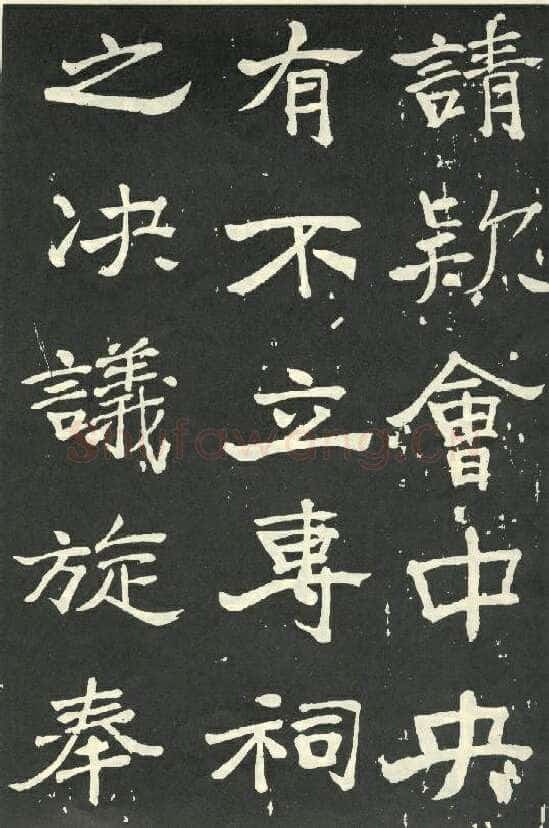 請款會中央
有不立專祠
之决議旋奉
shufawang.cn